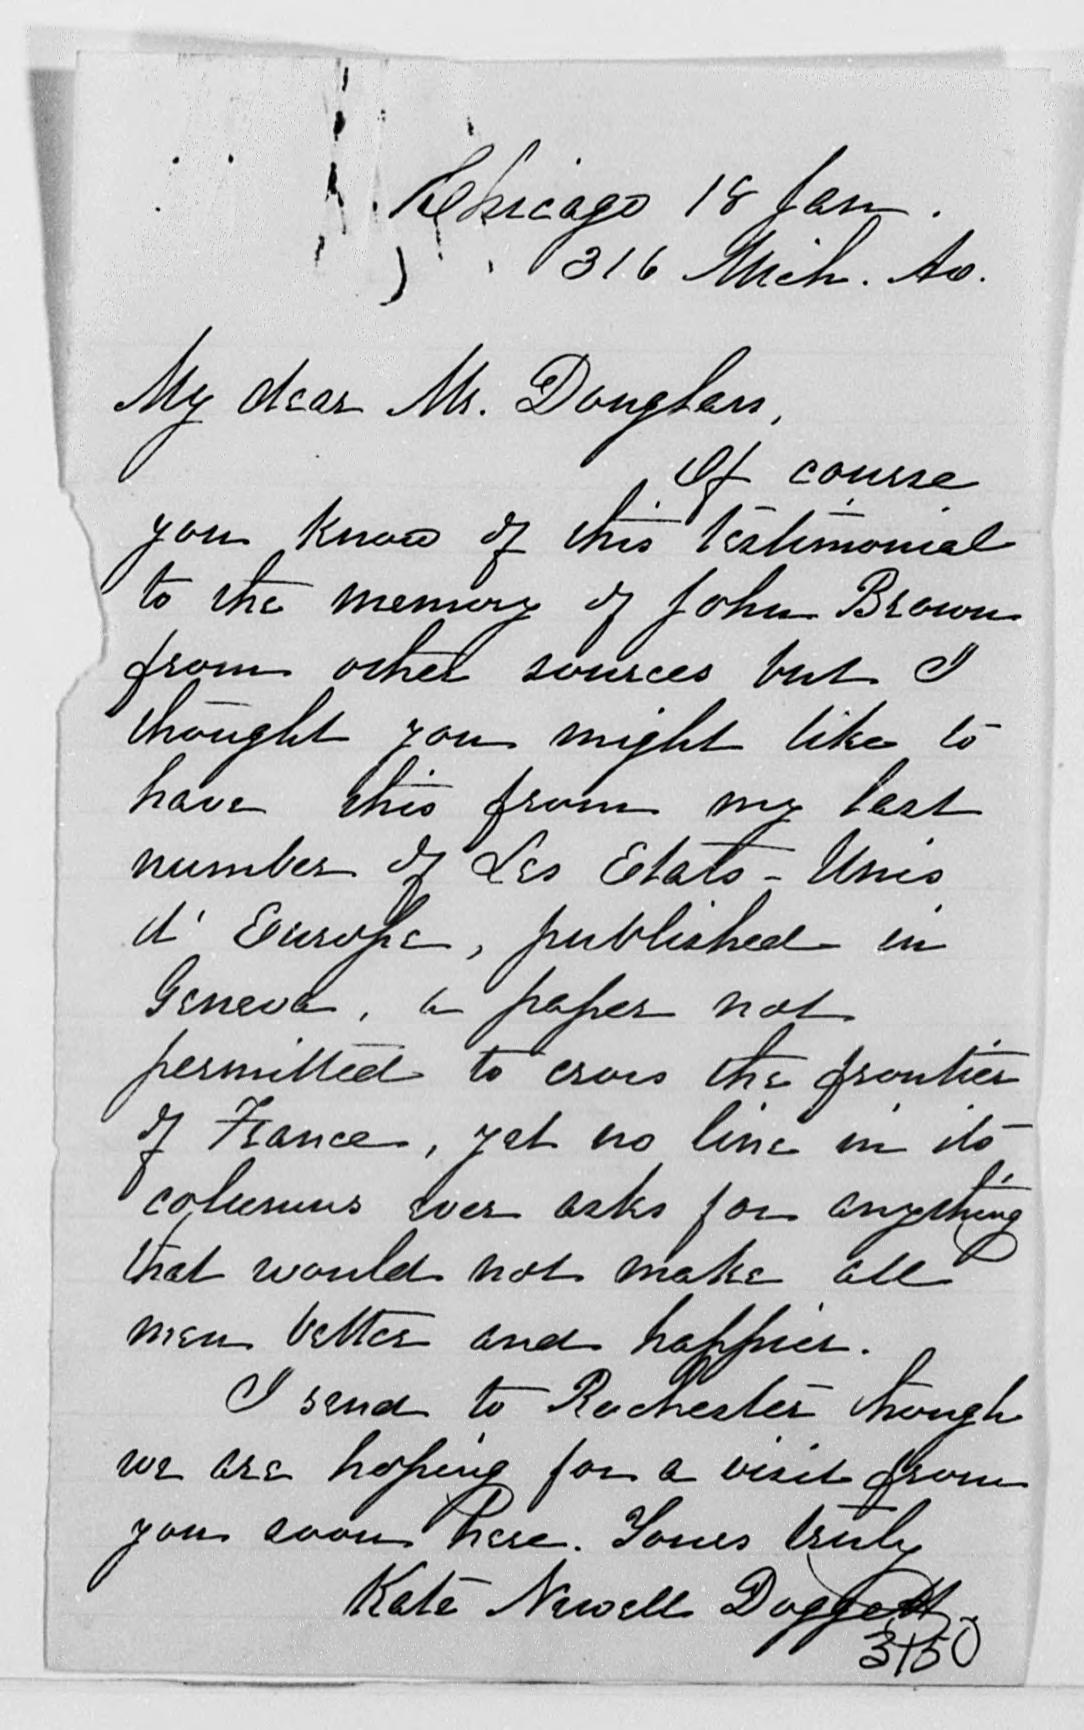 Chicago 18 Jan.
316 Mich. Av.
My dear Mr. Douglass,
Of course
you know of this testimonial
to the memory of John Brown
from other sources but I
thought you might like to
have this from my last
number of Les Etats-Unis
d'Europe, published in
Geneva, a paper not
permitted to cross the frontier
of France, yet no line in its
columns ever asks for anything
that would not make all
men better and happier.
I send to Rochester though
we are hoping for a visit from
you soon here. Yours truly
Kate Newell Doggett